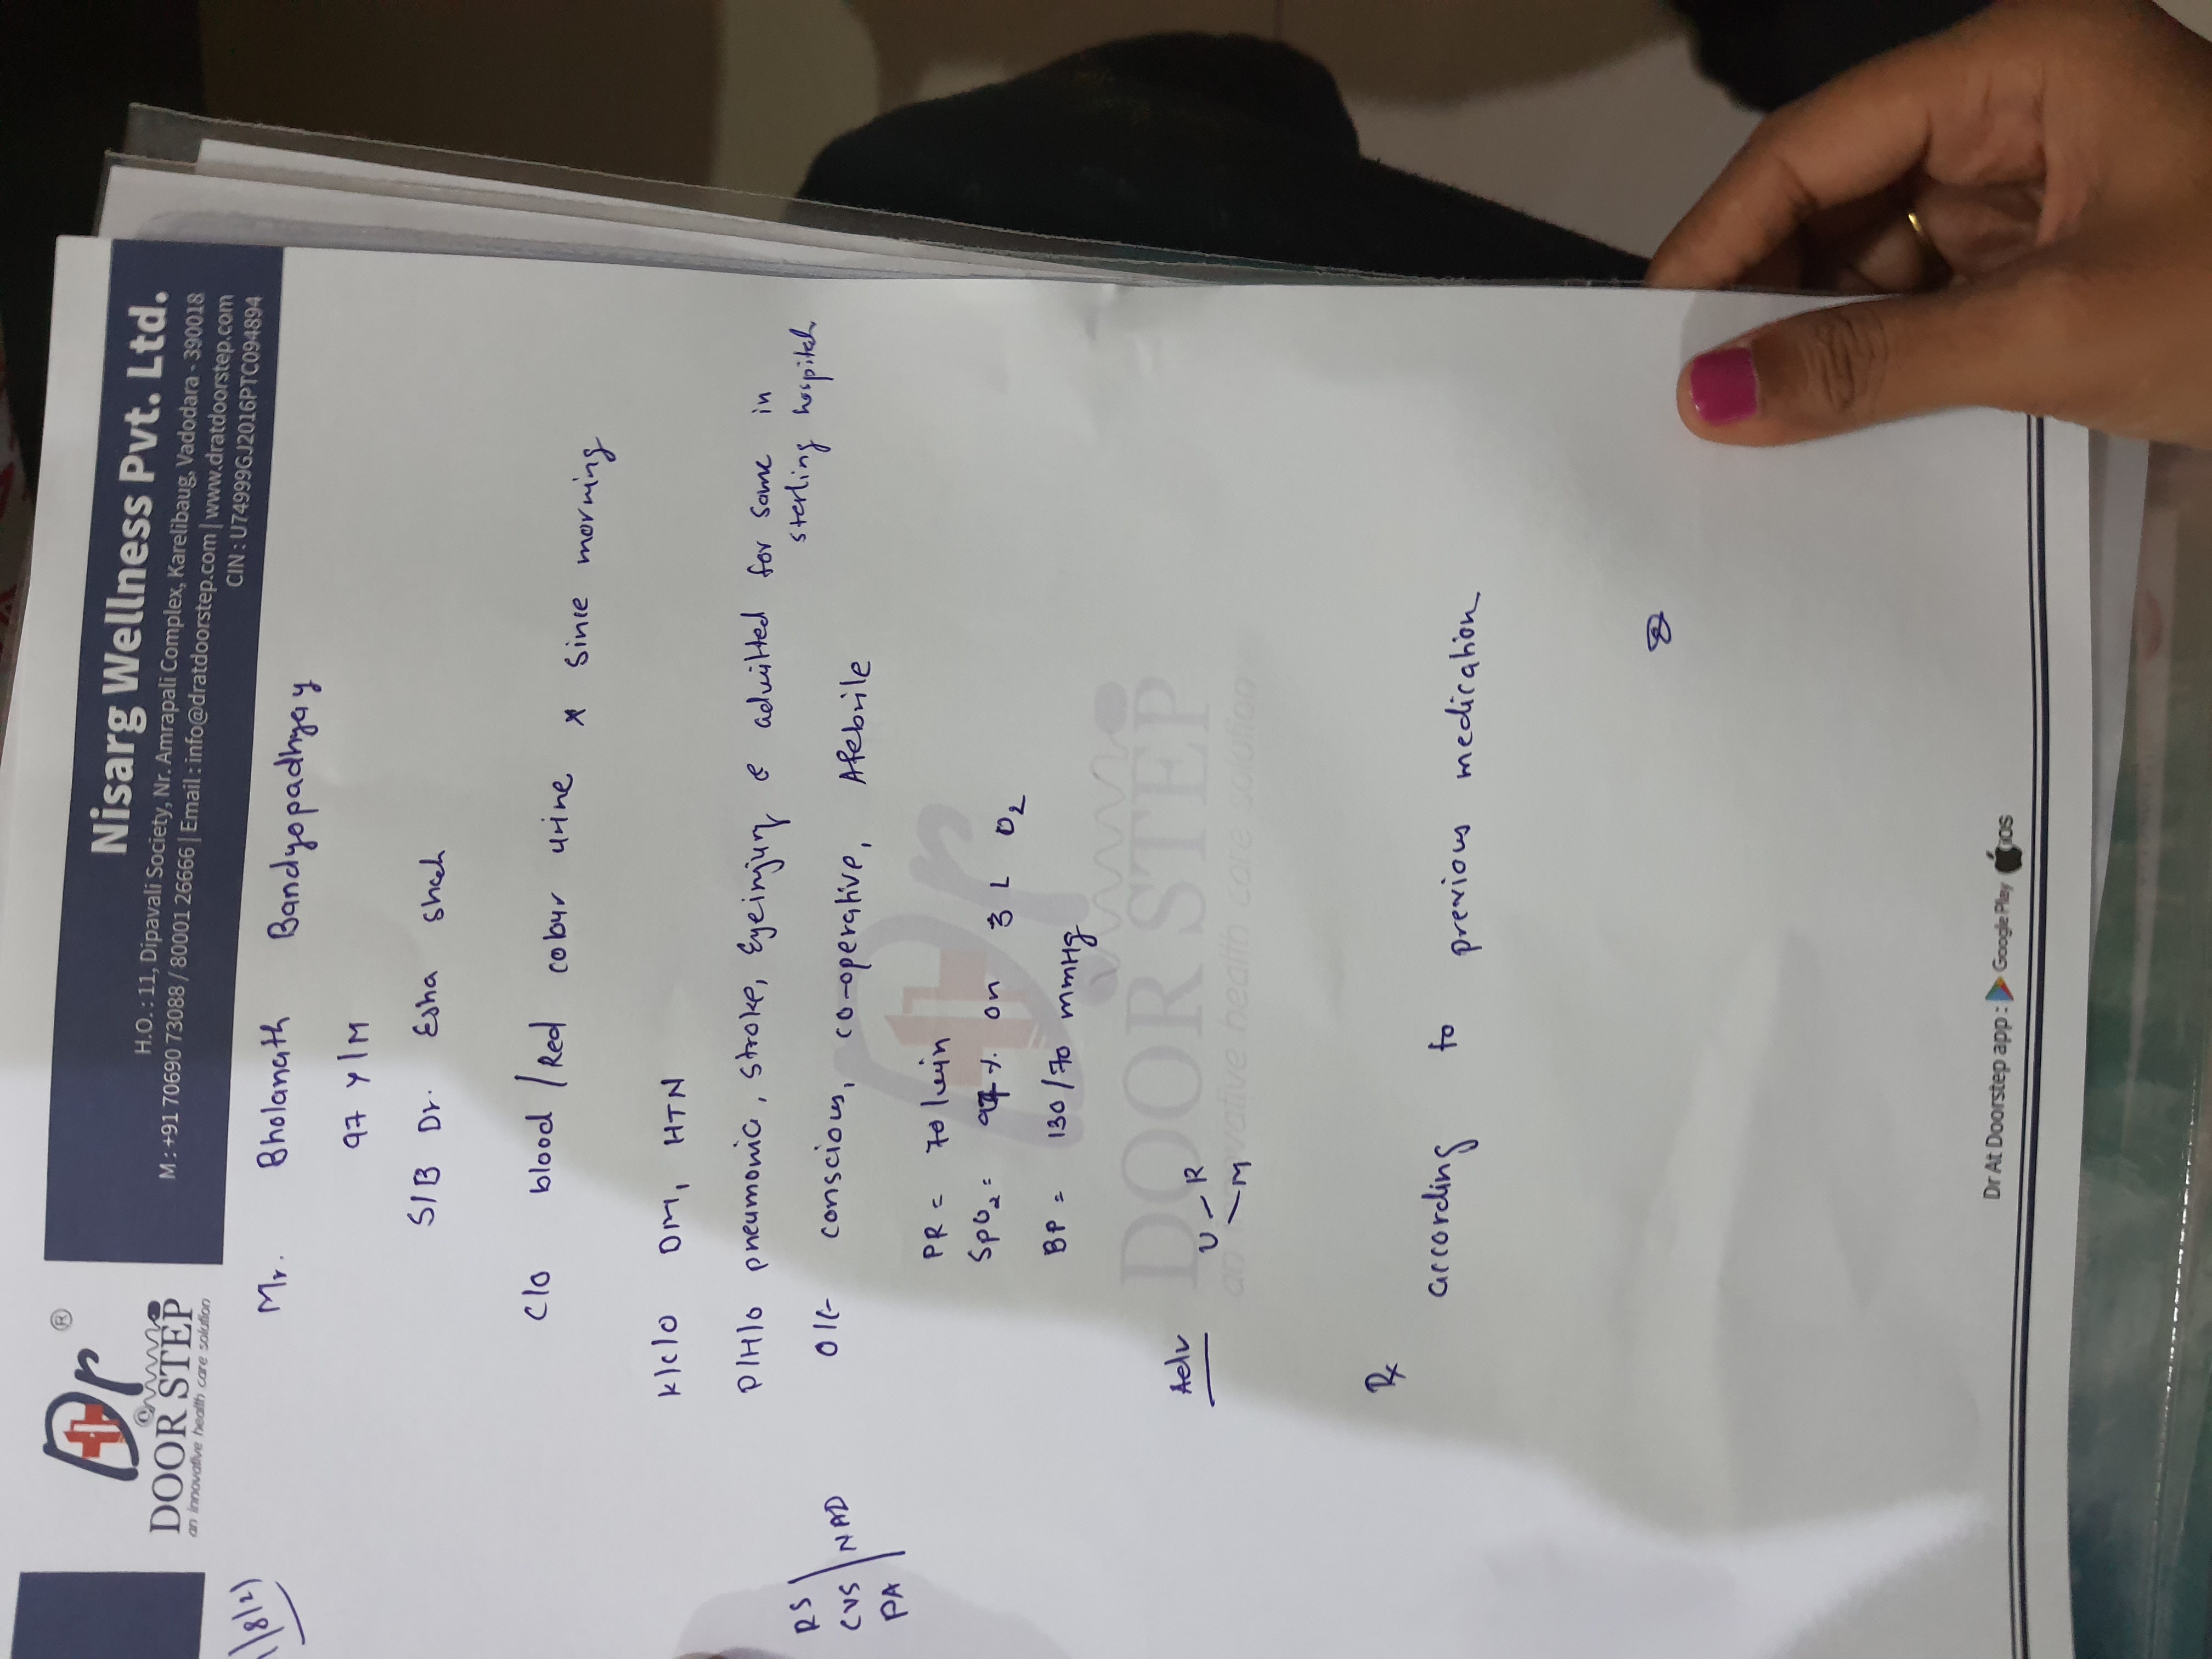 Dr ®
@
DOOR STEP
an innovative health care solution
Nisarg Wellness Pvt. Ltd.
H.O. : 11, Dipavali Society, Nr. Amrapali Complex, Karelibaug, Vadodara - 390018
M : +91 70690 73088 / 80001 26666 | Email : info@dratdoorstep.com | www.dratdoorstep.com
CIN : U74999GJ2016PTC094894
/8/21
Mr. Bholanath Bandyopadhyay
97 Y/M
S/B Dr. Esha Shah
C/O blood / Red colour urine x since morning
K/C/O DM, HTN
P/H/O pneumonia, stroke, Eye injury & admitted for same in
sterling hospital
RS
CVS NAD
PA
O/E conscious, co-operative, Afebrile
PR = 70/min
SpO2 = 97% on 3 L O2
BP = 130/70 mmHg
Dr
DOOR STEP
an innovative health care solution
Adv U R
M
Rx
according to previous medication
Dr At Doorstep app : Google Play iOS